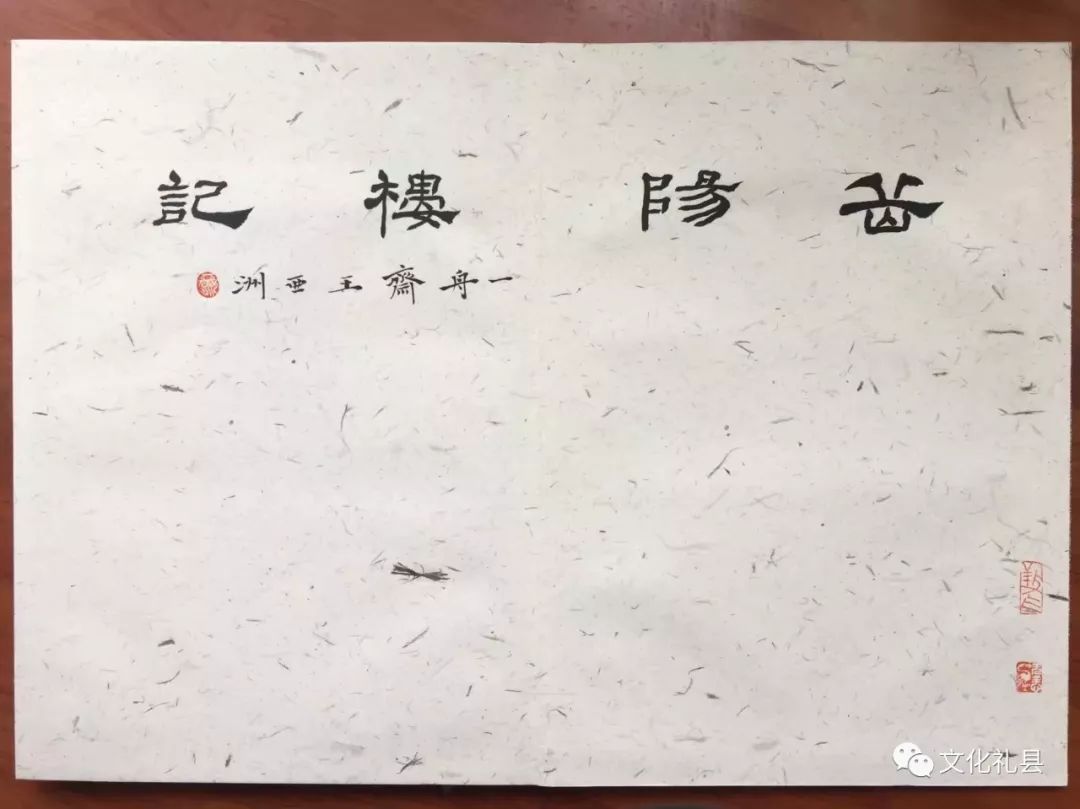 岳陽樓記
一舟齋王亜洲
文化礼县